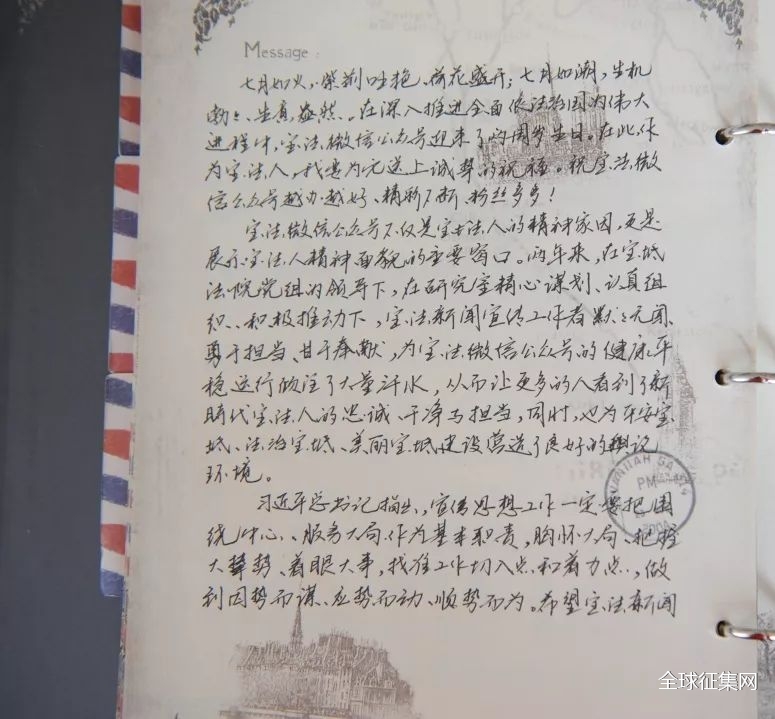 Message:
七月如火，紫荆吐艳、荷花盛开；七月如潮，生机
勃勃、生意盎然。在深入推进全面依法治国的伟大
进程中，宝法微信公众号迎来了两周岁生日。在此，作
为宝法人，我是为元送上诚挚的祝福。祝宝法微
信公众号越办越好、精彩不断、粉丝多多！
宝法微信公众号不仅是宝法人的精神家园，更是
展示宝法人精神面貌的重要窗口。两年来，在宝坻
法院党组的领导下，在研究室精心谋划、认真组
织、积极推动下，宝法新闻宣传工作者默默无闻、
勇于担当、甘于奉献，为宝法微信公众号的健康平
稳运行倾注了大量汗水，从而让更多的人看到了新
时代宝法人的忠诚、干净与担当，同时，也为平安宝
坻、法治宝坻、美丽宝坻建设营造了良好的舆论
环境。
习近平总书记指出，宣传思想工作一定要把围
绕中心、服务大局作为基本职责，胸怀大局、把握
大势、着眼大事，找准工作切入点和着力点，做
到因势而谋、应势而动、顺势而为。希望宝法新闻
PM
全球征集网